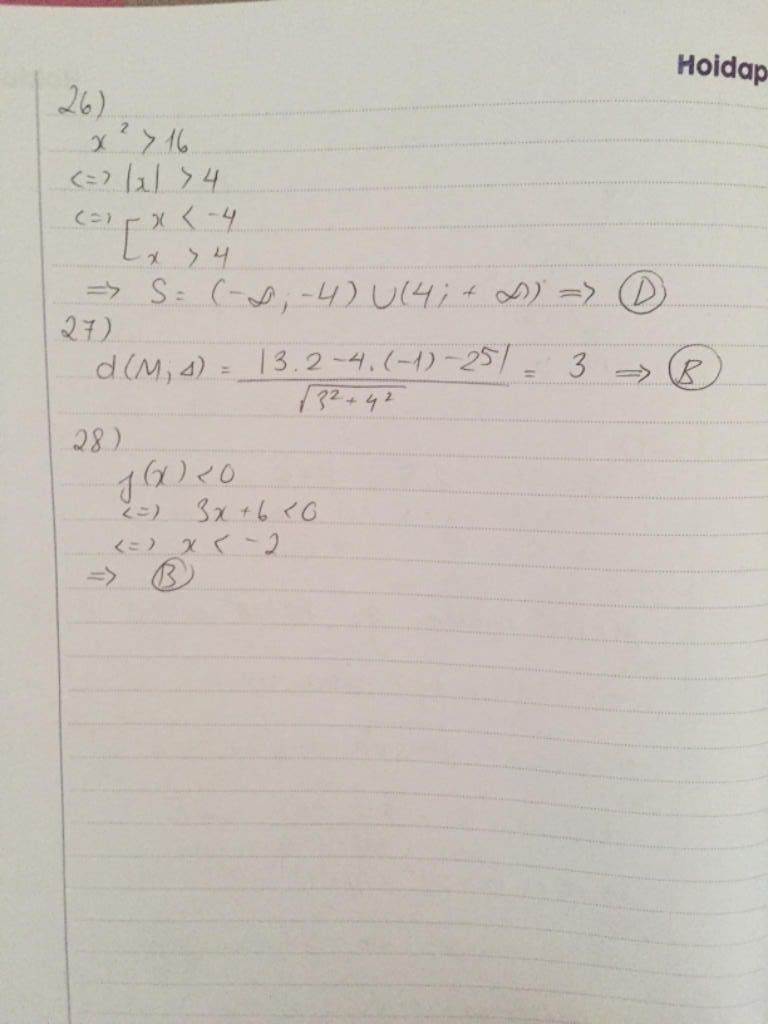 Hoidap
26)
x² > 16
<=> |x| > 4
<=> [ x < -4
x > 4
=> S = (-∞; -4) ∪ (4; +∞) => D
27)
d(M; Δ) = |3.2 - 4.(-1) - 25| / √(3² + 4²) = 3 => B
28)
f(x) < 0
<=> 3x + 6 < 0
<=> x < -2
=> B